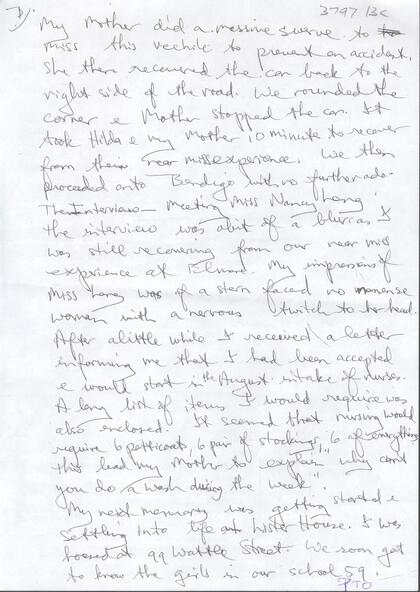 3797 13c
My Mother did a massive swerve to
miss this vechile to prevent an accident.
She then recovered the car back to the
right side of the road. We rounded the
corner & Mother stopped the car. It
took Hilda & my Mother 10 minute to recover
from their near miss experience. We then
proceeded onto Bendigo with no further ado.
The Interview - Meeting Miss Nancy Long
the interview was abit of a blur as I
was still recovering from our near miss
experience at Elmore. My impression of
Miss Long was of a stern faced no nonsense
woman with a nervous twitch to her head.
After a little while I received a letter
informing me that I had been accepted
& would start in the August intake of nurses.
A long list of items I would require was
also enclosed. It seemed that nursing would
require 6 patticoats, 6 pair of stockings, 6 of everything
this lead my Mother to explain, "why cant
you do a wash during the week".
My next memory was getting started &
settling into life at Lister House. I was
housed at 99 Wattle Street. We soon got
to know the girls in our school 59.
PTO